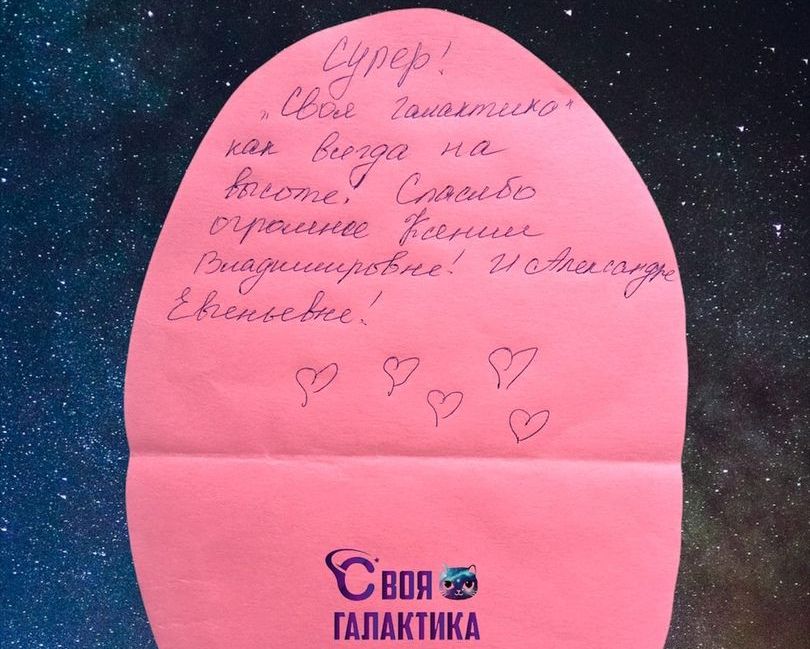 Супер!
„Своя галактика"
как всегда на
высоте! Спасибо
огромное Ксении
Владимировне! И Александре
Евгеньевне!
Своя
ГАЛАКТИКА